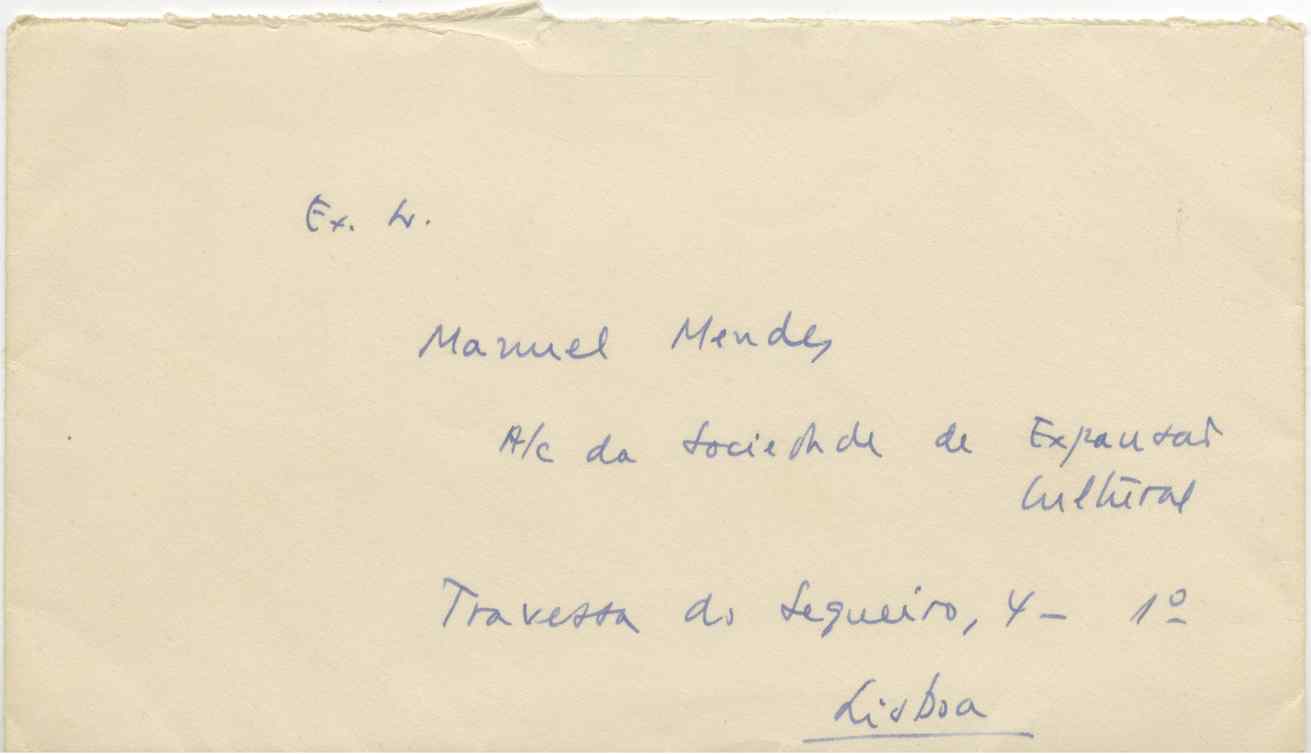 Ex. Sr.
Manuel Mendes
A/c da Sociedade de Expansão
Cultural
Travessa do Sequeiro, 4 - 1º
Lisboa